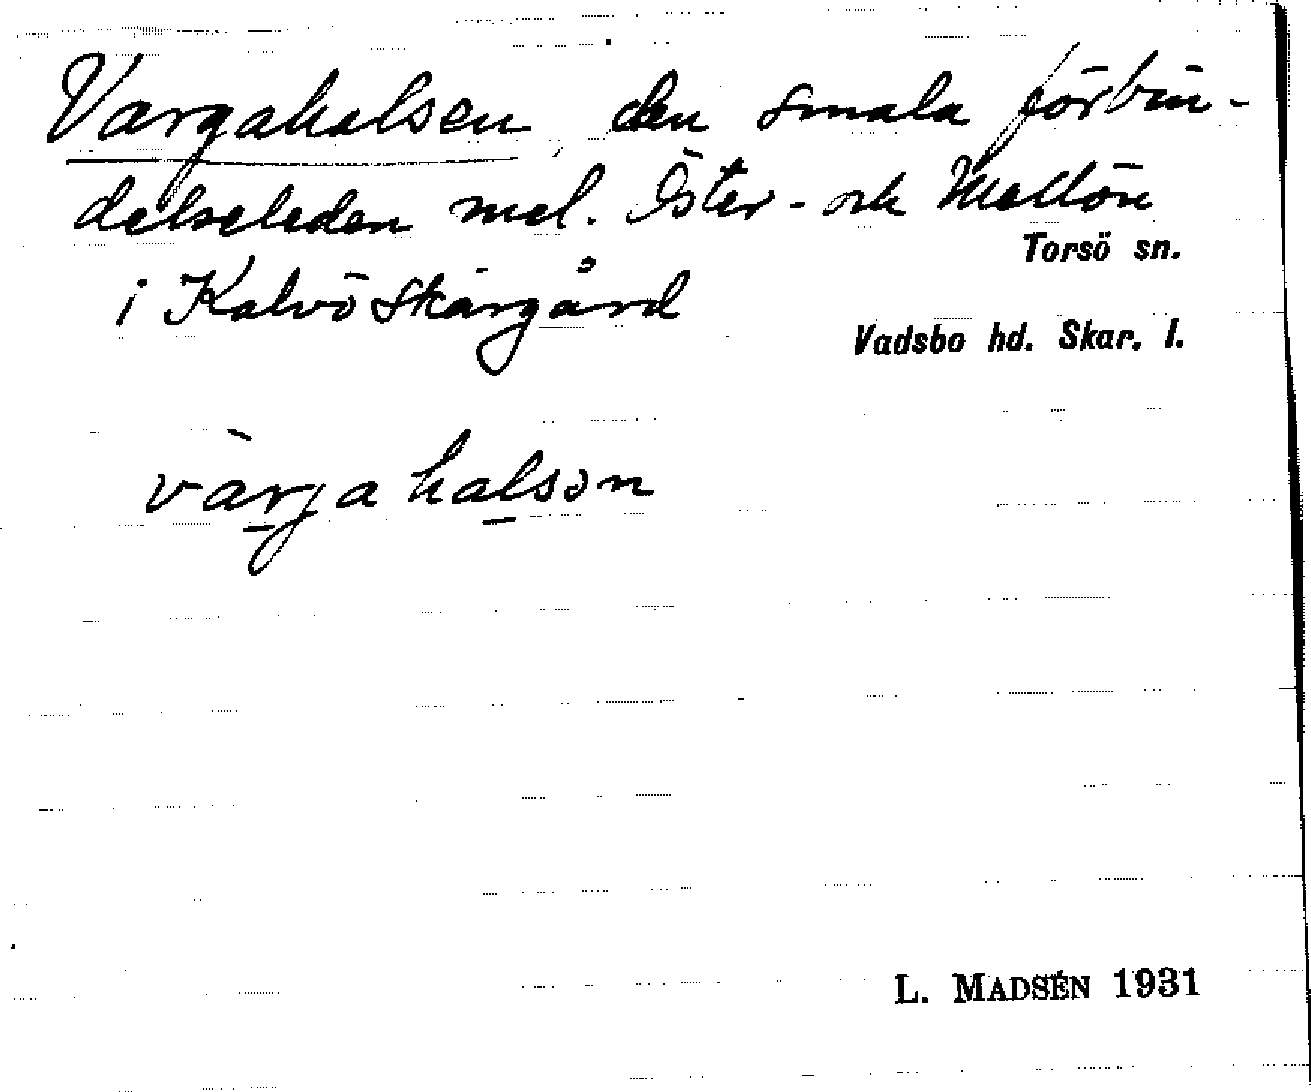 Vargahalsen, den smala förbin-
delseleden mel. Öster- och Mellön
Torsö sn.
i Kalvö skärgård
Vadsbo hd. Skar. l.
várjahalsən
L. MADSÉN 1931